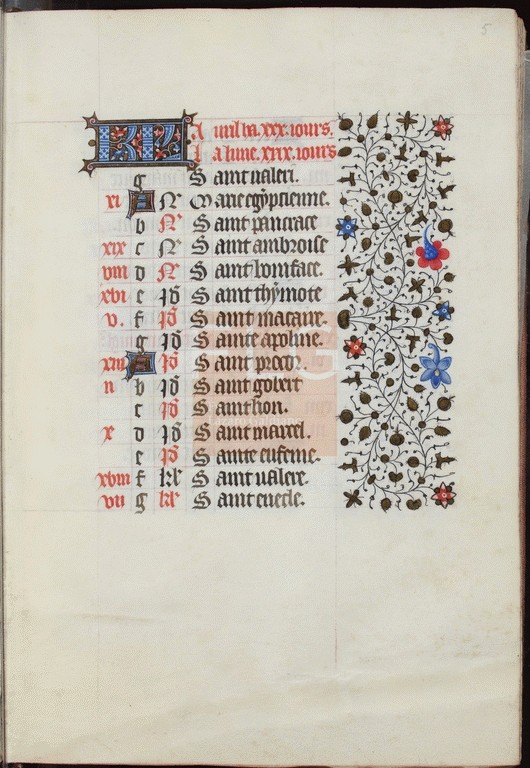 5
KL Auril ha .xxx. iours.
La lune .xxix. iours
g Saint ualeri.
xi A N Marie egyptienne.
b N Saint pancrace
xix c N Saint ambroise
viii d N Saint boniface.
xvi e id Saint thymote
v. f id Saint macaire.
g id Sainte apoline.
xiii A id Saint procor.
ii b id Saint gobert
c id Saint lion.
x d id Saint marcel.
e id Sainte eufeme.
xviii f kl' Saint ualere.
vii g kl' Saint euecle.